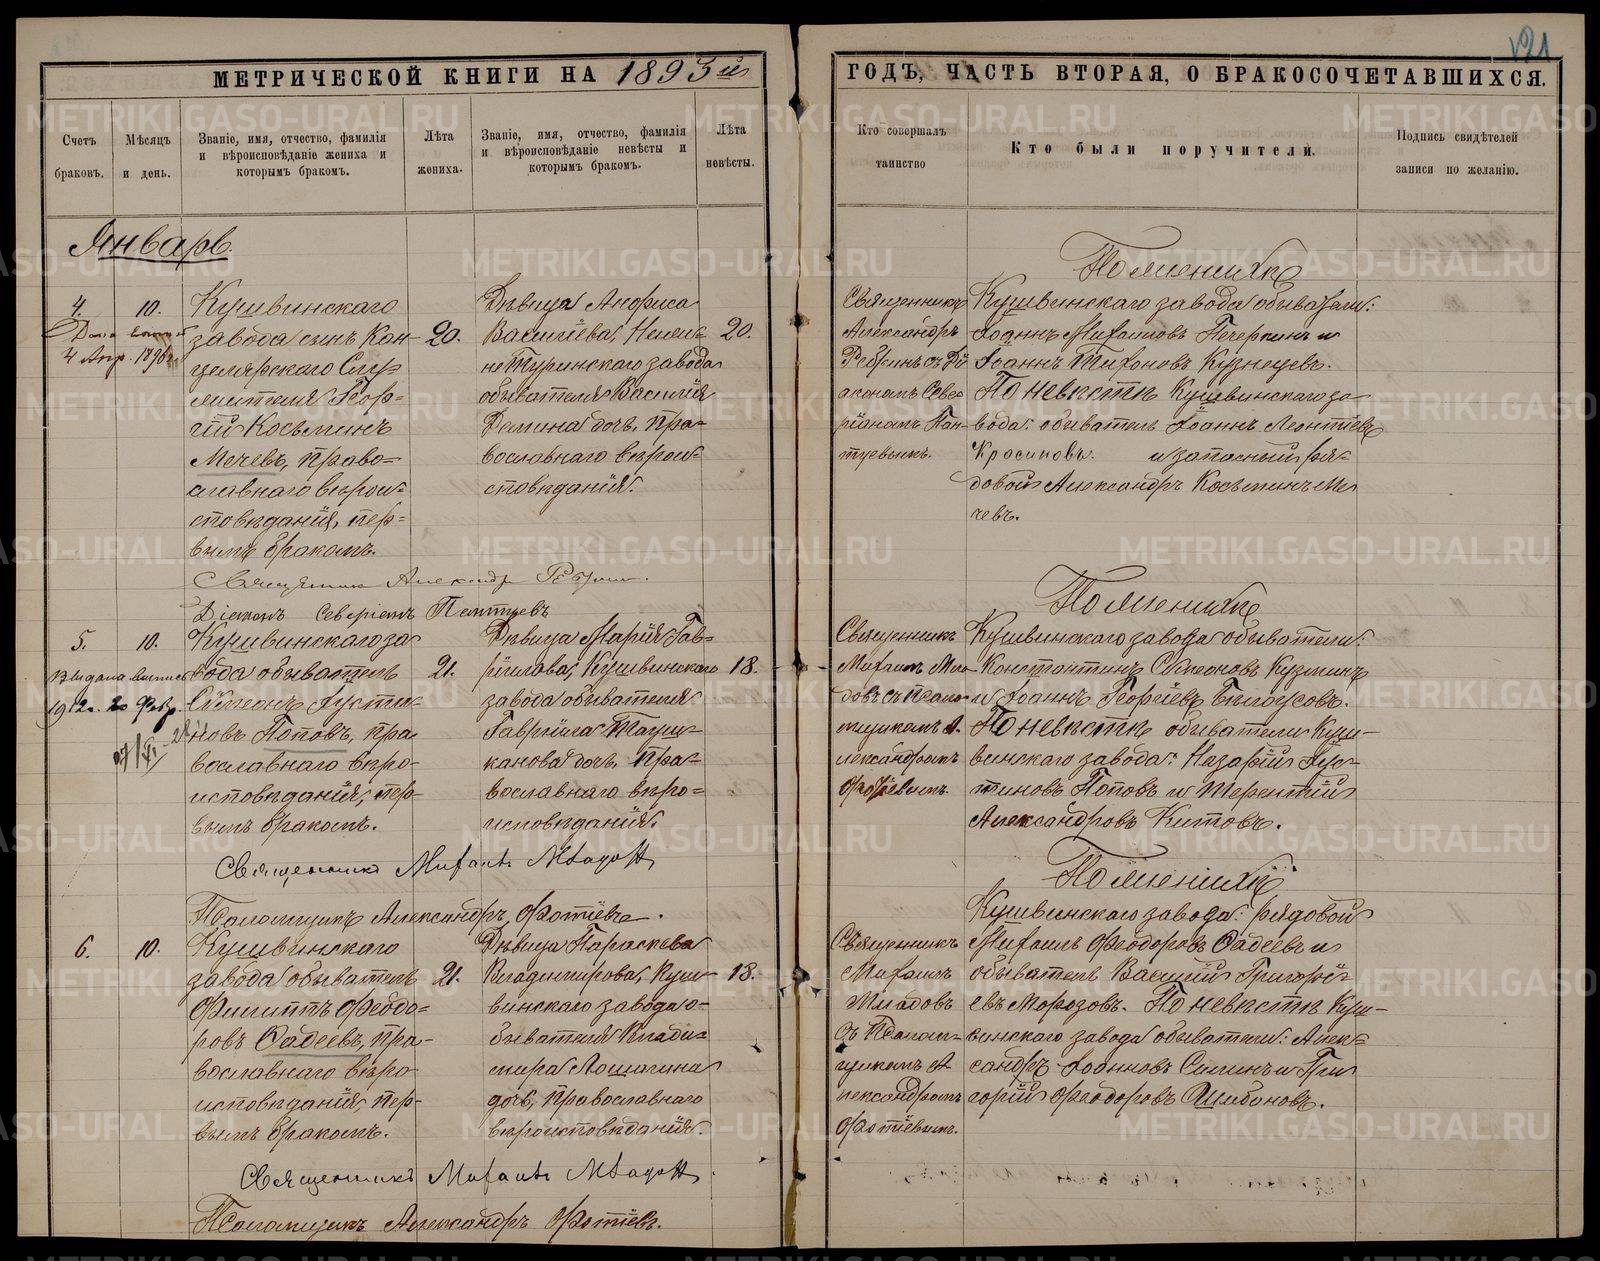 121
МЕТРИЧЕСКОЙ КНИГИ НА 1893й
ГОДЪ, ЧАСТЬ ВТОРАЯ, О БРАКОСОЧЕТАВШИХСЯ.
Счетъ браковъ.
Мѣсяцъ и день.
Званіе, имя, отчество, фамилія
и вѣроисповѣданіе жениха и
которымъ бракомъ.
Лѣта
жениха.
Званіе, имя, отчество, фамилія
и вѣроисповѣданіе невѣсты и
которымъ бракомъ.
Лѣта
невѣсты.
Кто совершалъ
таинство
Кто были поручители.
Подпись свидѣтелей
записи по желанію.
Январь.
4.
10.
4 Апр. 1896
Кушвинскаго
завода сынъ Кан=
целярскаго Слу=
жителя Геор=
гій Косьминъ
Мечевъ, право=
славнаго вѣрои=
сповѣданія, пер=
вымъ бракомъ.
20.
Дѣвица Анфиса
Василіева, Нижне=
Туринскаго завода
обывателя Василія
Демина дочь, пра=
вославнаго вѣрои=
сповѣданія.
20.
Священникъ
Александръ
съ Ді
акономъ Севе
ріаномъ Пан=
туевымъ.
По женихѣ
Кушвинскаго завода обыватели:
Іоаннъ Михаиловъ Печеркинъ и
Іоаннъ Тихоновъ Кузнецовъ.
По невѣстѣ Кушвинскаго за=
вода: обыватель Іоаннъ Леонтіевъ
и запасный ря=
довой Александръ Косьминъ Ме
чевъ.
Священникъ Александръ
Діаконъ Северіанъ Пантуевъ
5.
10.
Выдана выпись
1912г. 20 Февр.
Кушвинскаго за
вода обыватель
Сѵмеонъ Іусти=
новъ Поповъ, пра
вославнаго вѣро=
исповѣданія, пер=
вымъ бракомъ.
21.
Дѣвица Марія Гав=
ріилова, Кушвинскаго
завода обывателя
Гавріила Тащи=
канова дочь, пра=
вославнаго вѣро=
исповѣданія.
18.
Священникъ
Михаилъ Мла=
довъ съ Псало=
мщикомъ А=
лександромъ
Фотіевымъ.
По женихѣ
Кушвинскаго завода обыватели:
Константинъ Сѵмеоновъ Кузминъ
и Іоаннъ Георгіевъ Бѣлоусовъ.
По невѣстѣ обыватели Куш=
винскаго завода: Назарій Іус=
тиновъ Поповъ и Терентій
Александровъ Китовъ.
Священникъ Михаилъ Младовъ
Псаломщикъ Александръ Фотіевъ.
6.
10.
Кушвинскаго
завода обыватель
Филиппъ Феодо=
ровъ Фадеевъ, пра=
вославнаго вѣро
исповѣданія, пер=
вымъ бракомъ.
21.
Дѣвица Параскева
Владимирова, Куш=
винскаго завода о=
бывателя Влади=
мира Лошагина
дочь, православнаго
вѣроисповѣданія.
18.
Священникъ
Михаилъ
Младовъ
съ Псалом=
щикомъ А=
лександромъ
Фотіевымъ.
По женихѣ
Кушвинскаго завода: рядовой
Михаилъ Феодоровъ Фадеевъ и
обыватель Василій Григорі=
евъ Морозовъ. По невѣстѣ Куш=
винскаго завода обыватели: Алек=
сандръ Силинъ и Гри
горій Феодоровъ Шибоновъ.
Священникъ Михаилъ Младовъ.
Псаломщикъ Александръ Фотіевъ.
METRIKI.GASO-URAL.RU